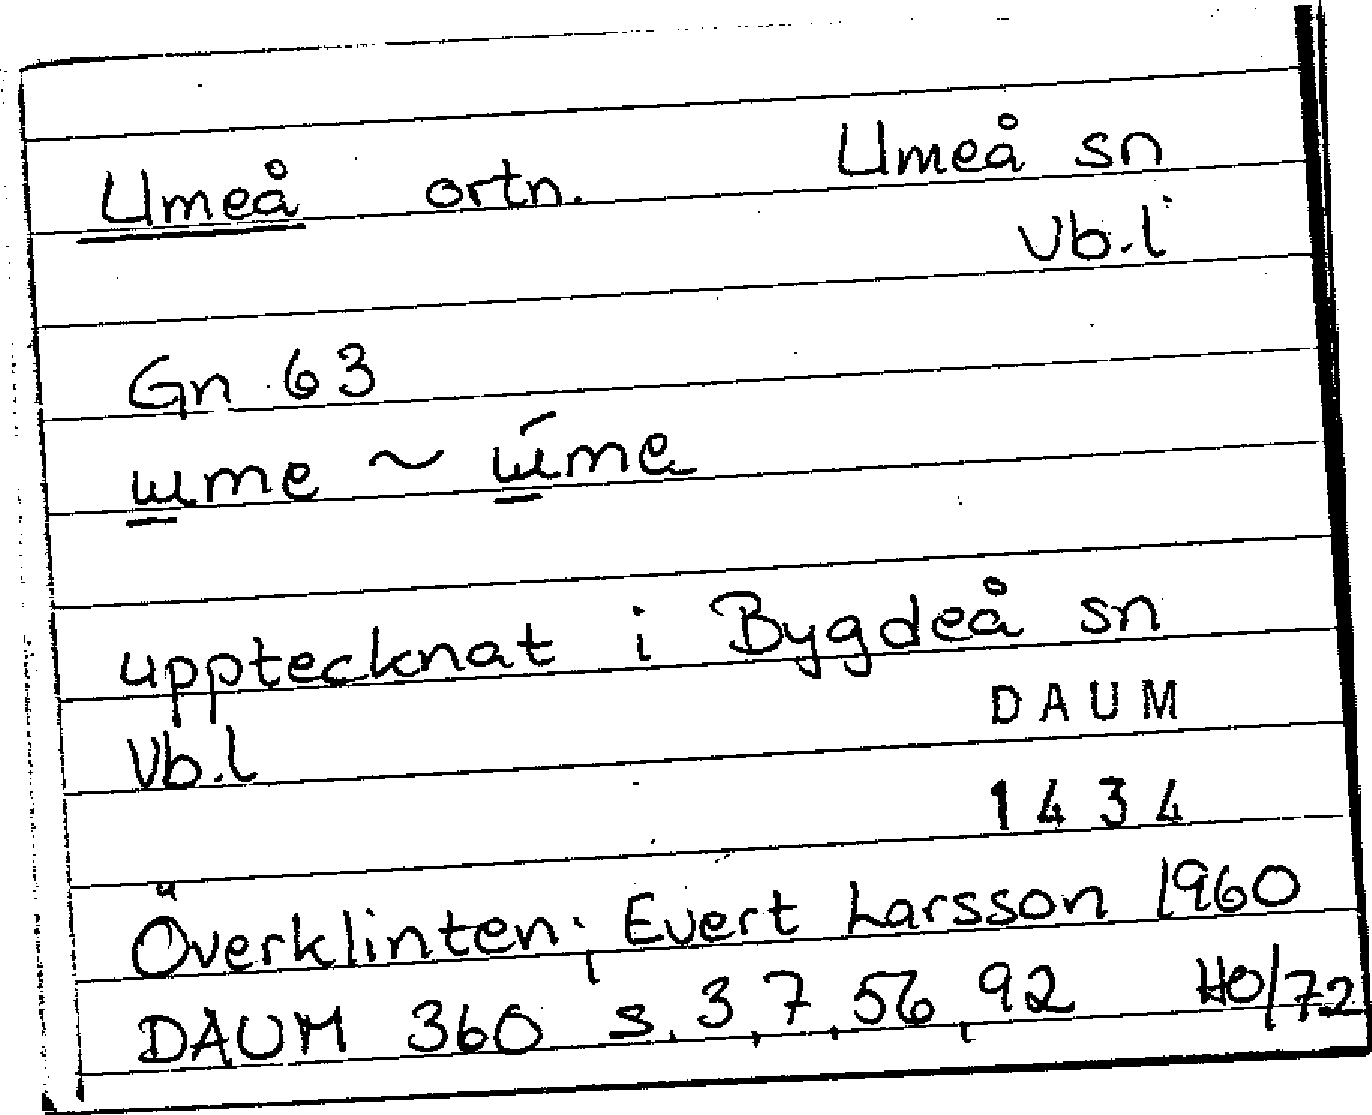 Umeå ortn. Umeå sn
Vb.l
Gn 63
ɯme ~ ɯ́me
upptecknat i Bygdeå sn
Vb.l
DAUM
1434
Överklinten; Evert Larsson 1960
DAUM 360 s. 3, 7, 56, 92 HO/72